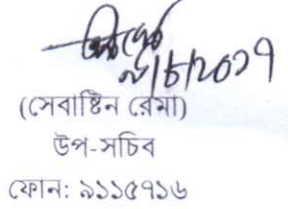 (সেবাষ্টিন রেমা)
উপ-সচিব
ফোন: ৯১১৫৭১৬